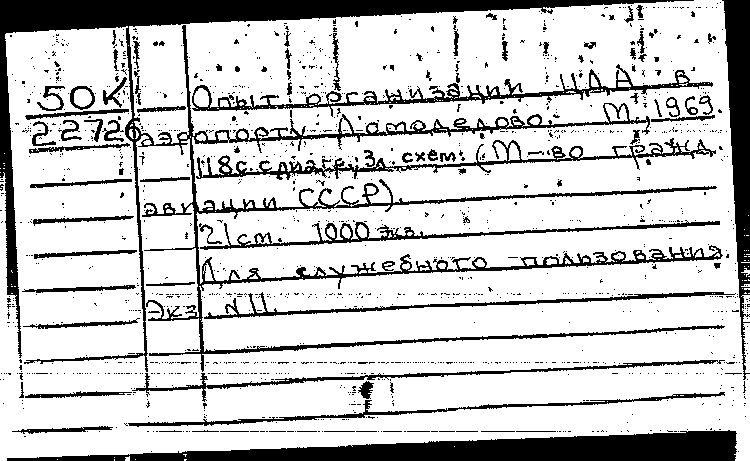 50К Опыт организации ЦДА в
22726 аэропорту Домодедово. М., 1969.
118с. с диагр.; 3л. схем. (М-во гражд.
авиации СССР).
21см. 1000 экз.
Для служебного пользования.
Экз. №11.